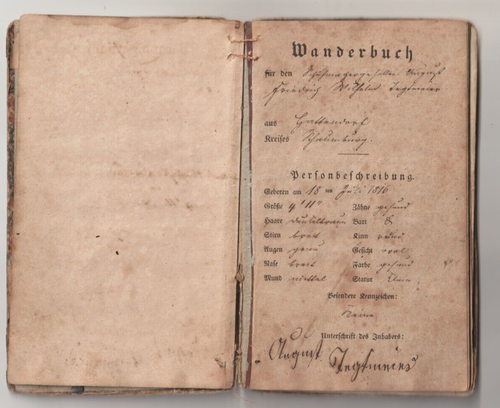 Wanderbuch
für den Schuhmachergesellen August
Friedrich Wilhelm Tegtmeier
aus Hattendorf
Kreises Schaumburg.
Personbeschreibung.
Geboren am 18 ten Juli 1816
Größe 4' 11" Zähne gesund
Haare dunkelbraun Bart
Stirn breit Kinn rund
Augen grau Gesicht oval
Nase breit Farbe gesund
Mund mittel Statur klein
Besondere Kennzeichen:
Keine
Unterschrift des Inhabers:
August Tegtmeier